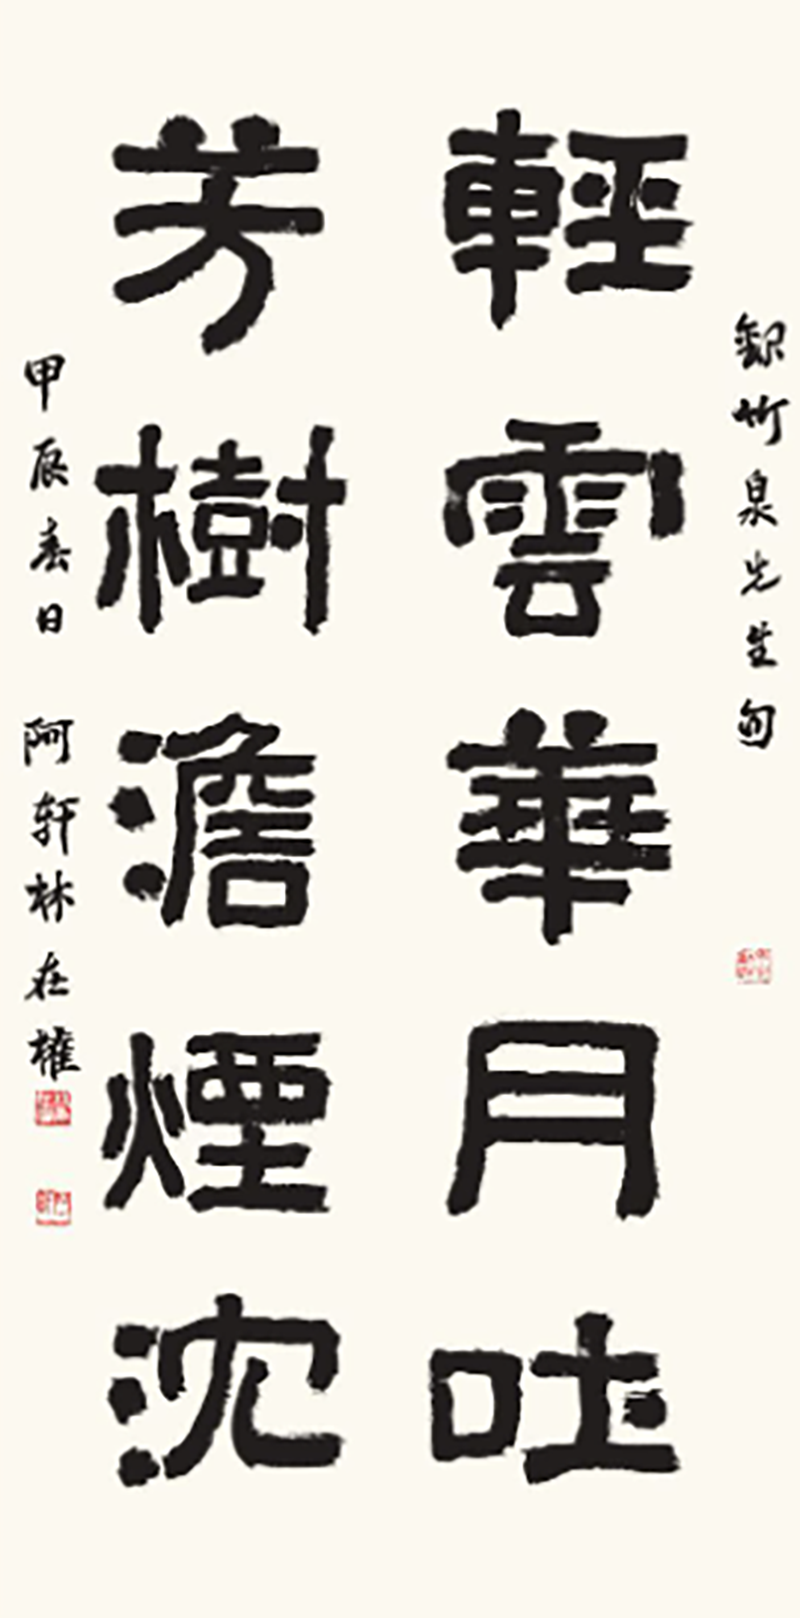 録竹泉先生句
輕雲華月吐
芳樹澹煙沈
甲辰春日 阿轩林在權